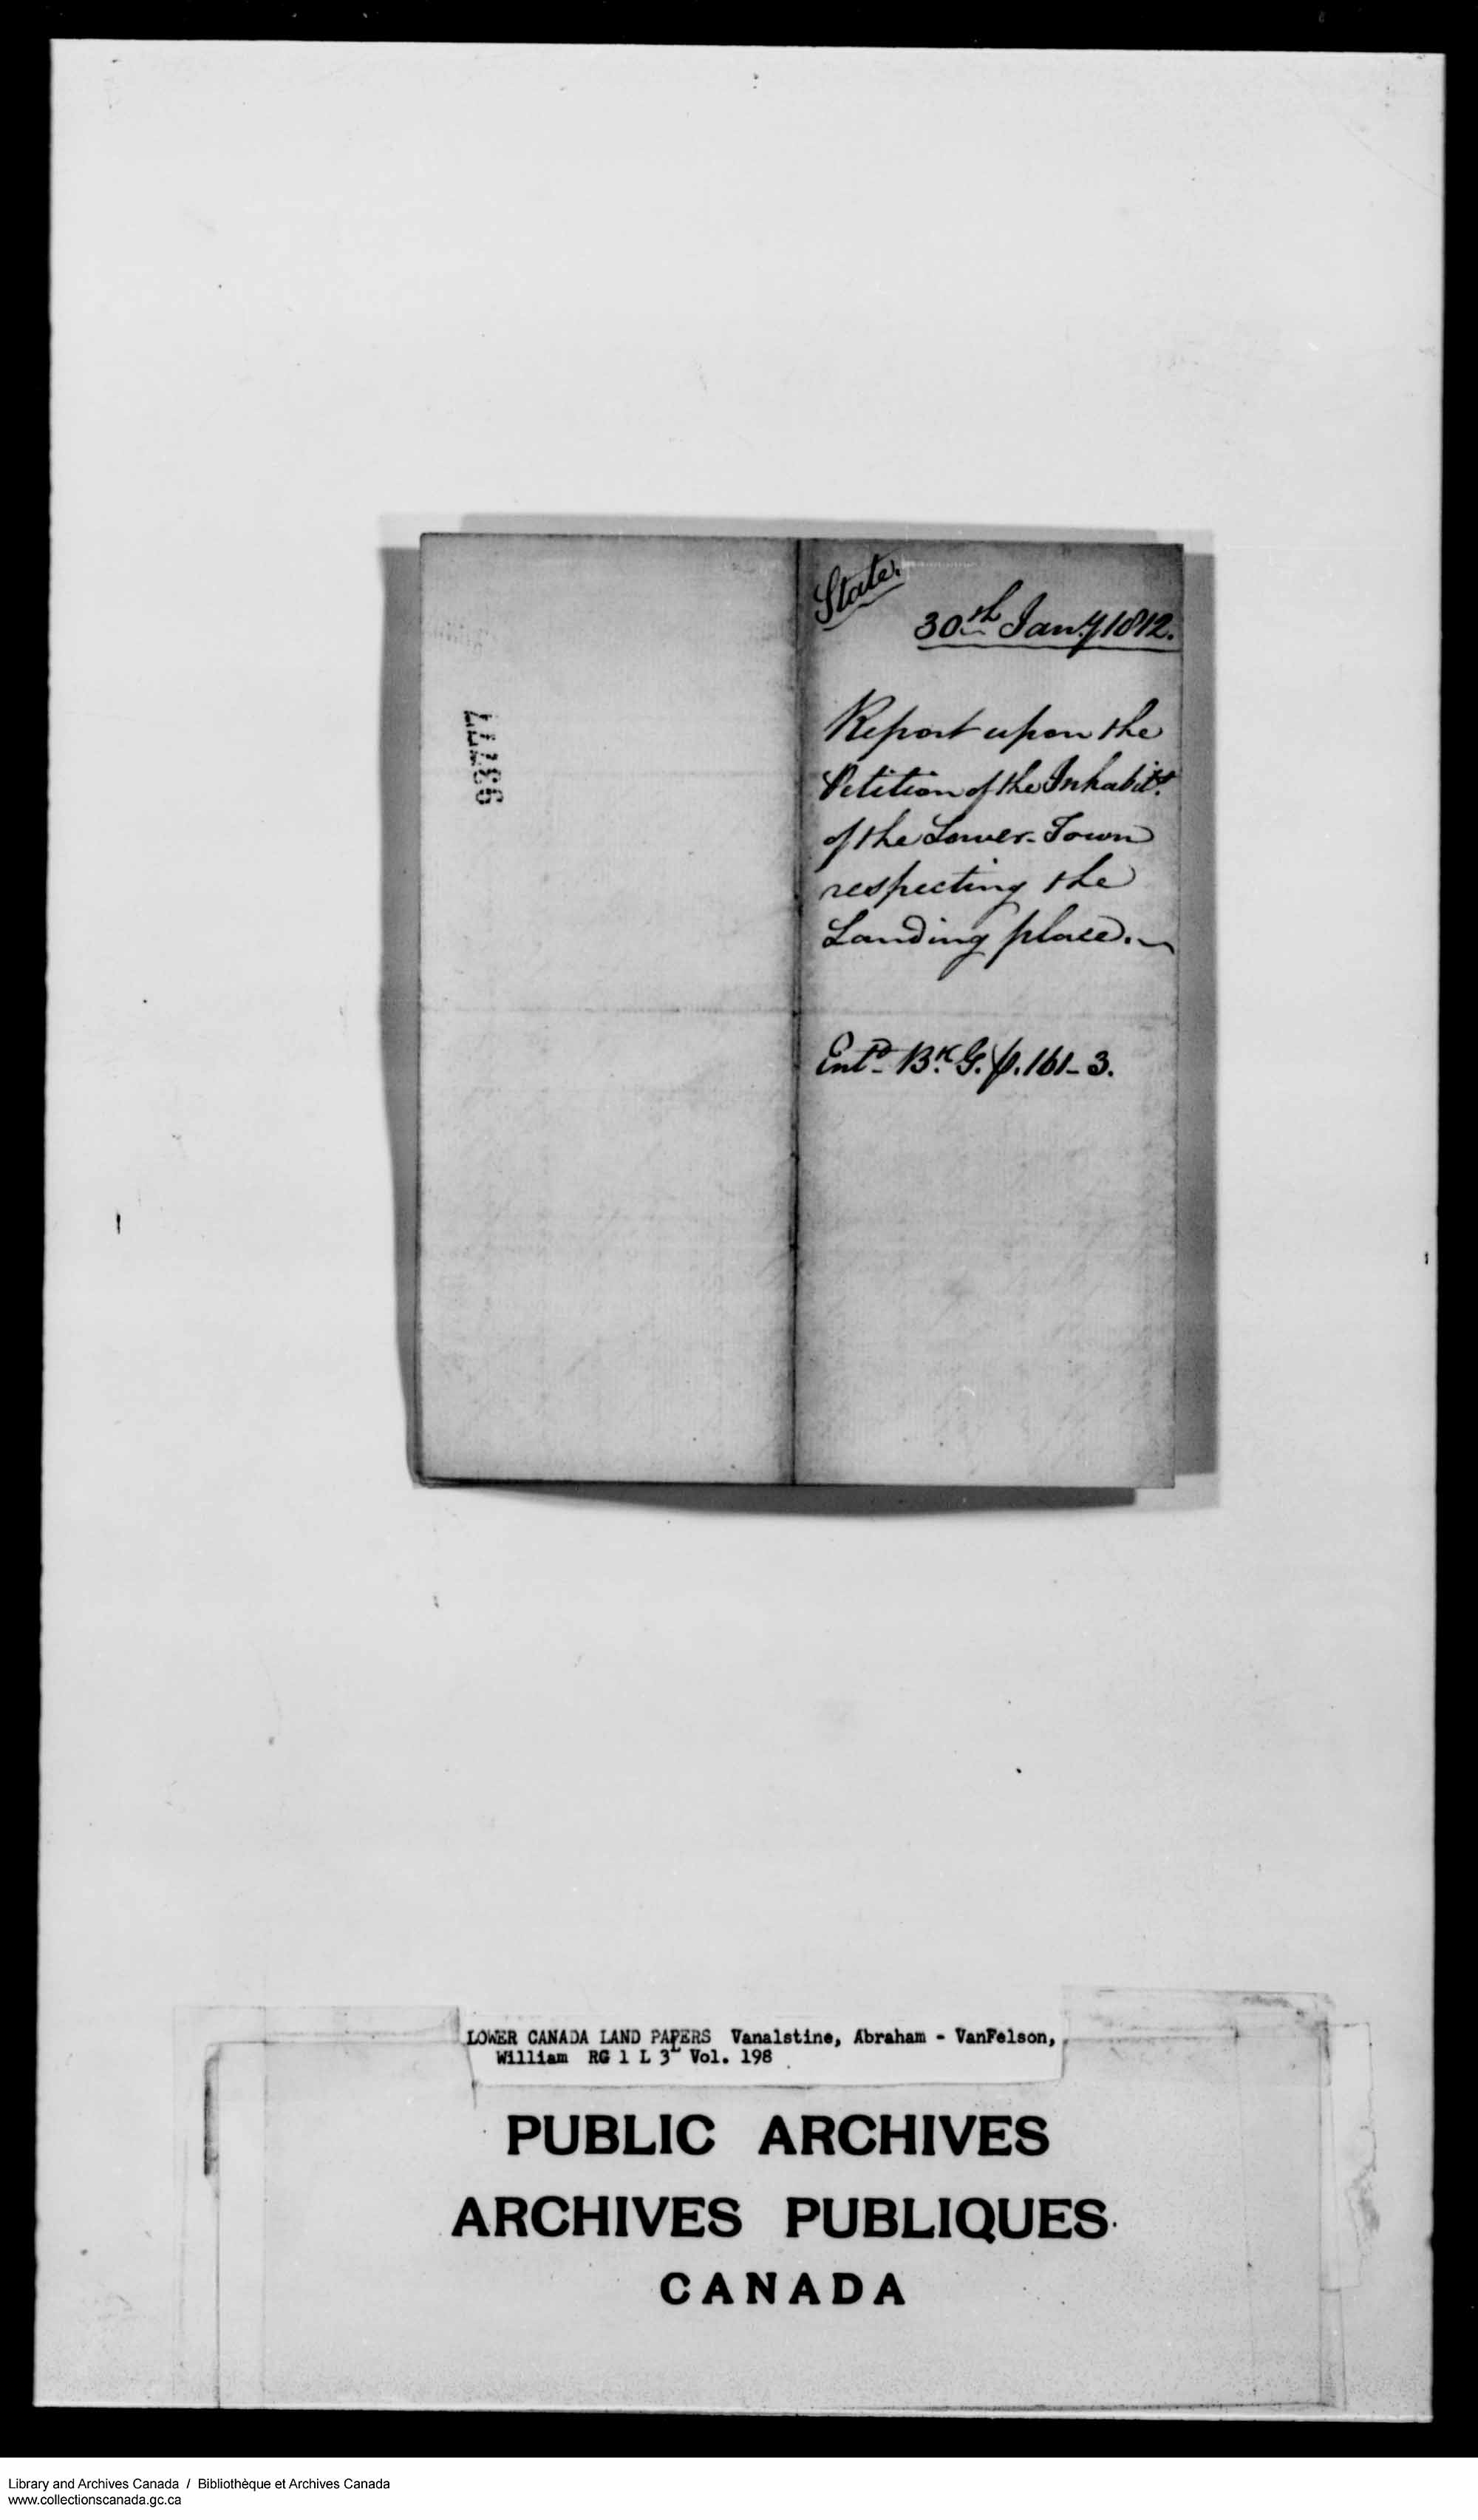 State,
30th Jany 1812.
Report upon the
Petition of the Inhabitts.
of the Lower-Town
respecting the
Landing place.
Entd. Bk. G. p. 161-3.
93777
LOWER CANADA LAND PAPERS Vanalstine, Abraham - VanFelson,
William RG 1 L 3L Vol. 198
PUBLIC ARCHIVES
ARCHIVES PUBLIQUES
CANADA
Library and Archives Canada / Bibliothèque et Archives Canada
www.collectionscanada.gc.ca